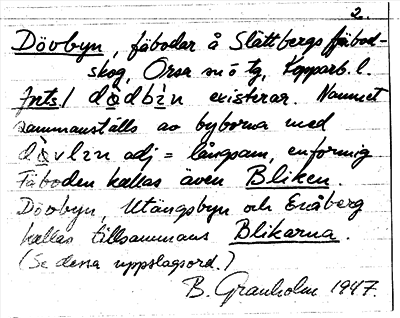 2.
Dövbyn, fäbodar å Slättbergs fäbod-
skog, Orsa sn ö tg, Kopparb. l.
d d b z n existerar. Namnet
sammanställs av byborna med
adj = långsam, enformig
Fäboden kallas även Bliken.
Dövbyn, Utängsbyn och Enåberg
kallas tillsammans Blikarna.
(Se dessa uppslagsord.)
B. Granholm 1947.